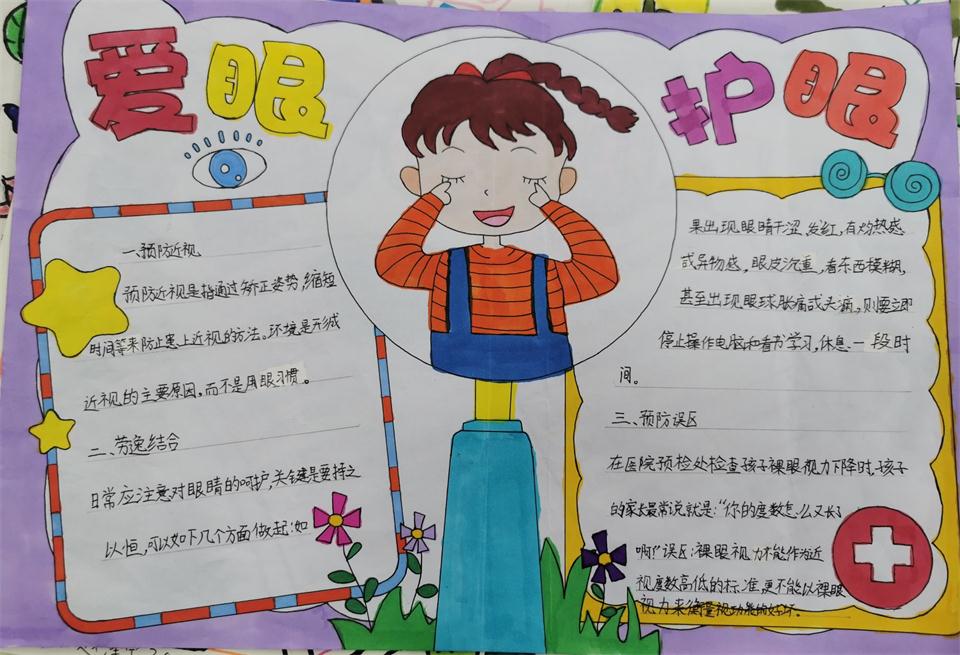 爱眼
护眼
一、预防近视
预防近视是指通过矫正姿势,缩短
时间等来防止患上近视的方法。环境是形成
近视的主要原因,而不是用眼习惯。
二、劳逸结合
日常应注意对眼睛的呵护,关键是要持之
以恒,可以如下几个方面做起:如
果出现眼睛干涩,发红,有灼热感
或异物感,眼皮沉重,看东西模糊,
甚至出现眼球胀痛或头痛,则要立即
停止操作电脑和看书学习,休息一段时
间。
三、预防误区
在医院预检处检查孩子裸眼视力下降时,孩子
的家长最常说就是:“你的度数怎么又长
啊!”误区:裸眼视力不能作为近
视度数高低的标准,更不能以裸眼
视力来衡量视功能的好坏。